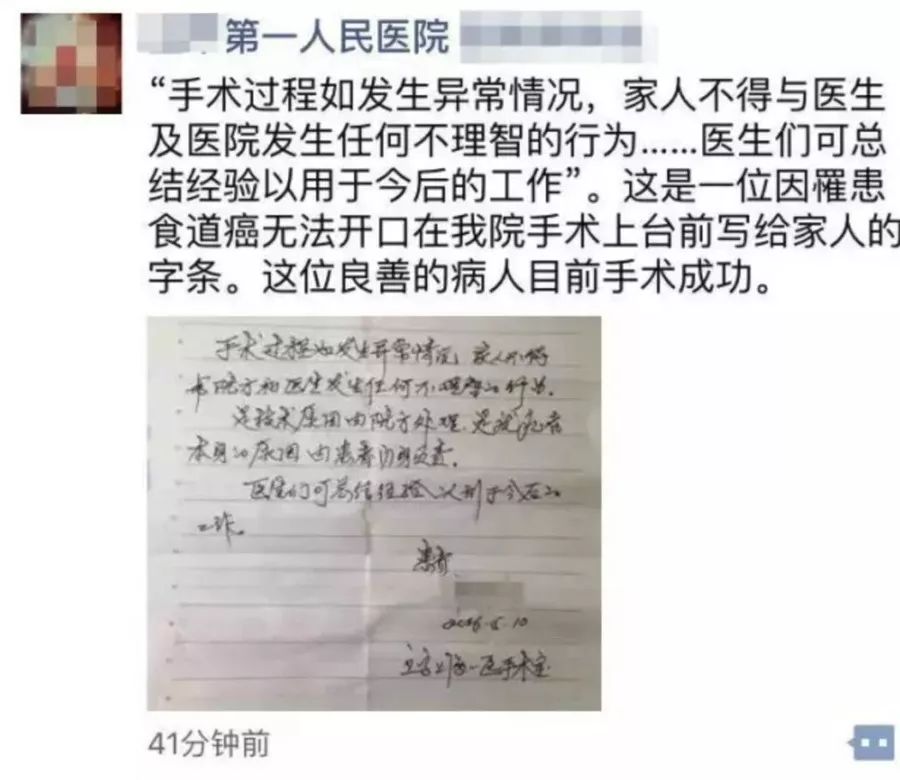 第一人民医院
“手术过程如发生异常情况，家人不得与医生
及医院发生任何不理智的行为......医生们可总
结经验以用于今后的工作”。这是一位因罹患
食道癌无法开口在我院手术上台前写给家人的
字条。这位良善的病人目前手术成功。
手术过程如发生异常情况，家人不得
与院方和医生发生任何不理智的行为。
是技术原因由院方处理，是
本身的原因由患者自身负责。
医生们可总结经验以利于今后的
工作。
患者
10
一医手术室
41分钟前